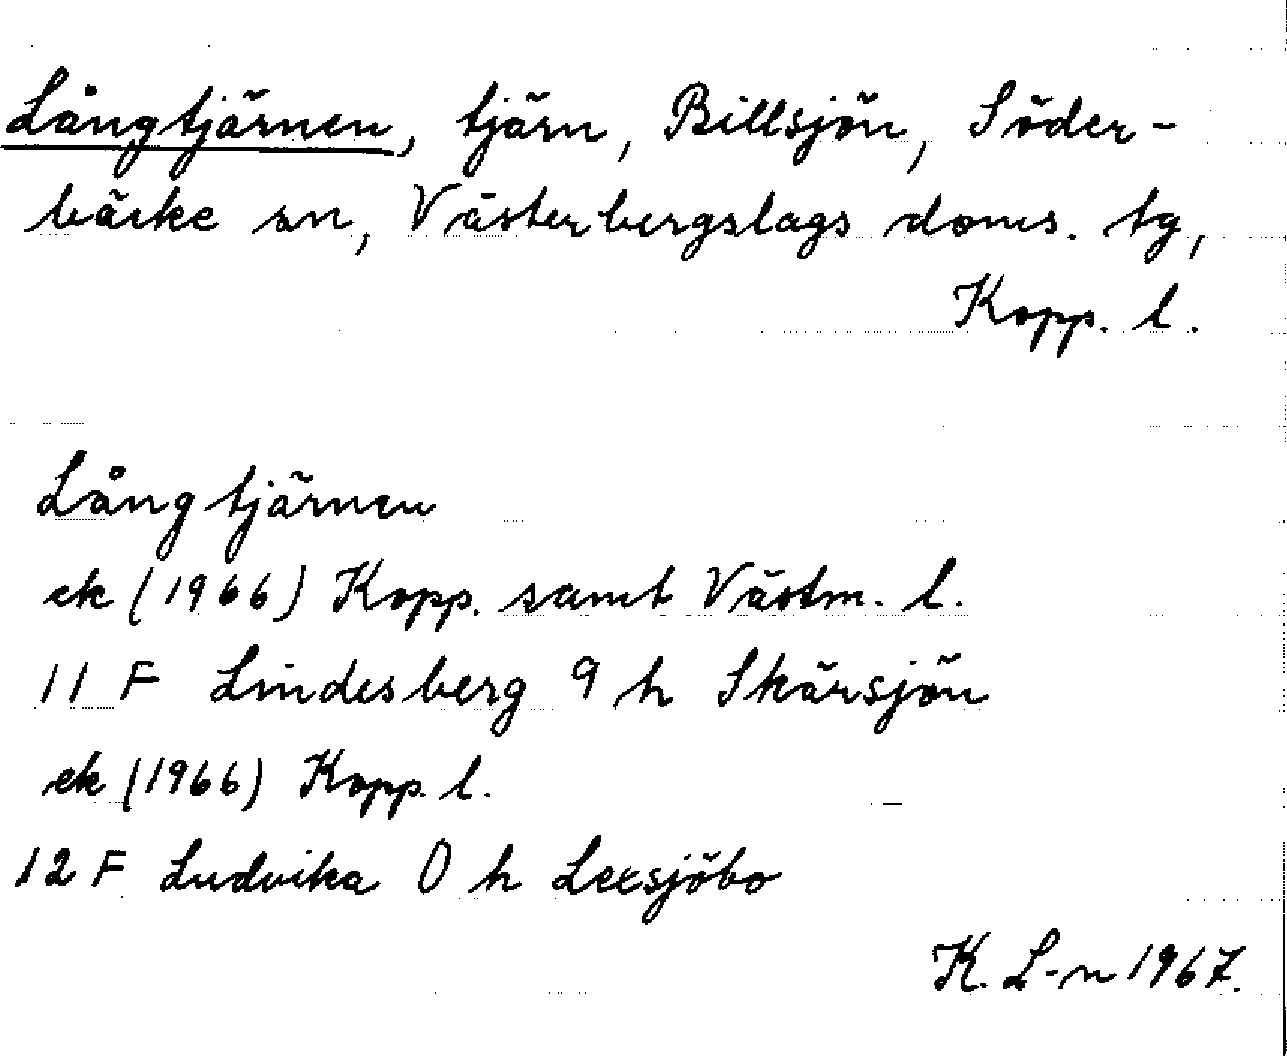 Långtjärnen, tjärn, Billsjön, Söder-
bärke sn, Västerbergslags doms. tg,
Kopp. l.
Långtjärnen
ek (1966) Kopp. samt Västm. l.
11 F Lindesberg 9 h Skärsjön
ek (1966) Kopp. l.
12 F Ludvika 0 h Lexsjöbo
K. L-n 1967.